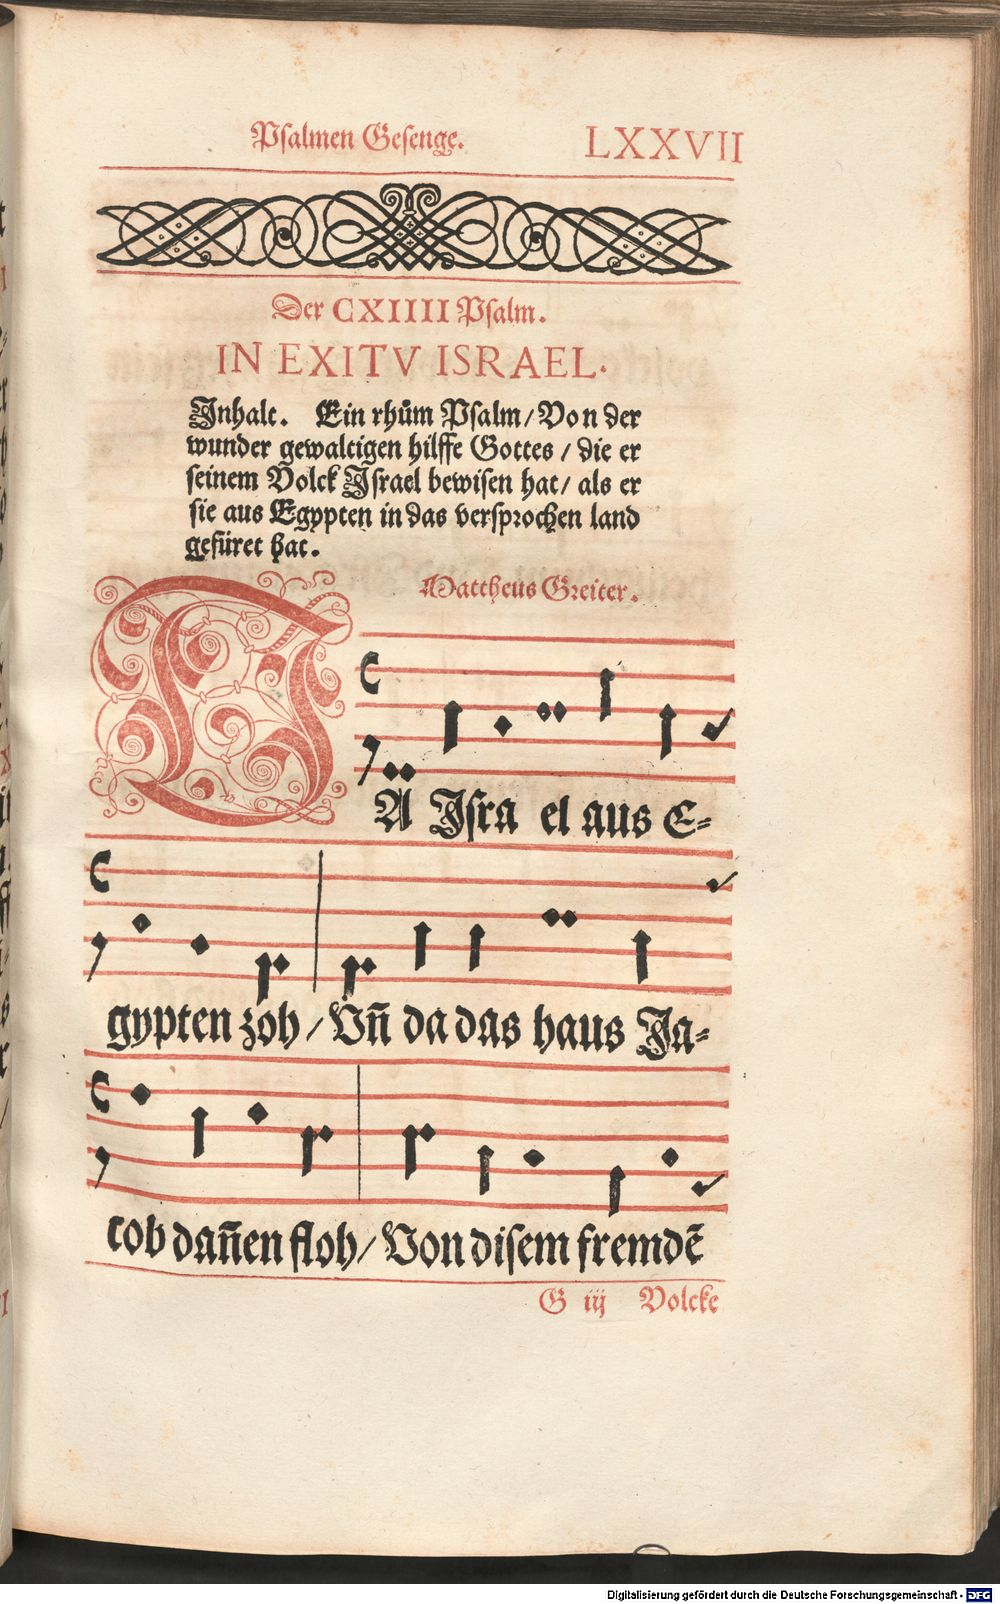 Psalmen Gesenge. LXXVII
Der CXIIII Psalm.
IN EXITV ISRAEL.
Inhalt. Ein rhům Psalm/ Von der
wunder gewaltigen hilffe Gottes / die er
seinem Volck Israel bewisen hat/ als er
sie aus Egypten in das versprochen land
gefüret hat.
Mattheus Greiter.
DA Isra el aus E-
gypten zoh / Vñ da das haus Ja-
cob dañen floh/ Von disem fremdē
G iij Volcke
Digitalisierung gefördert durch die Deutsche Forschungsgemeinschaft - DFG